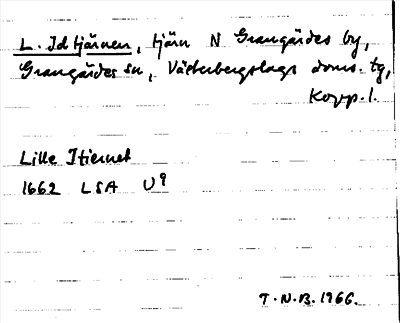 L. Idtjärnen, tjärn N Grangärdes by,
Grangärdes sn, Västerbergslags doms. tg,
Kopp. l.
Lille Itiernet
1662 LSA U9
T.N.B. 1966.